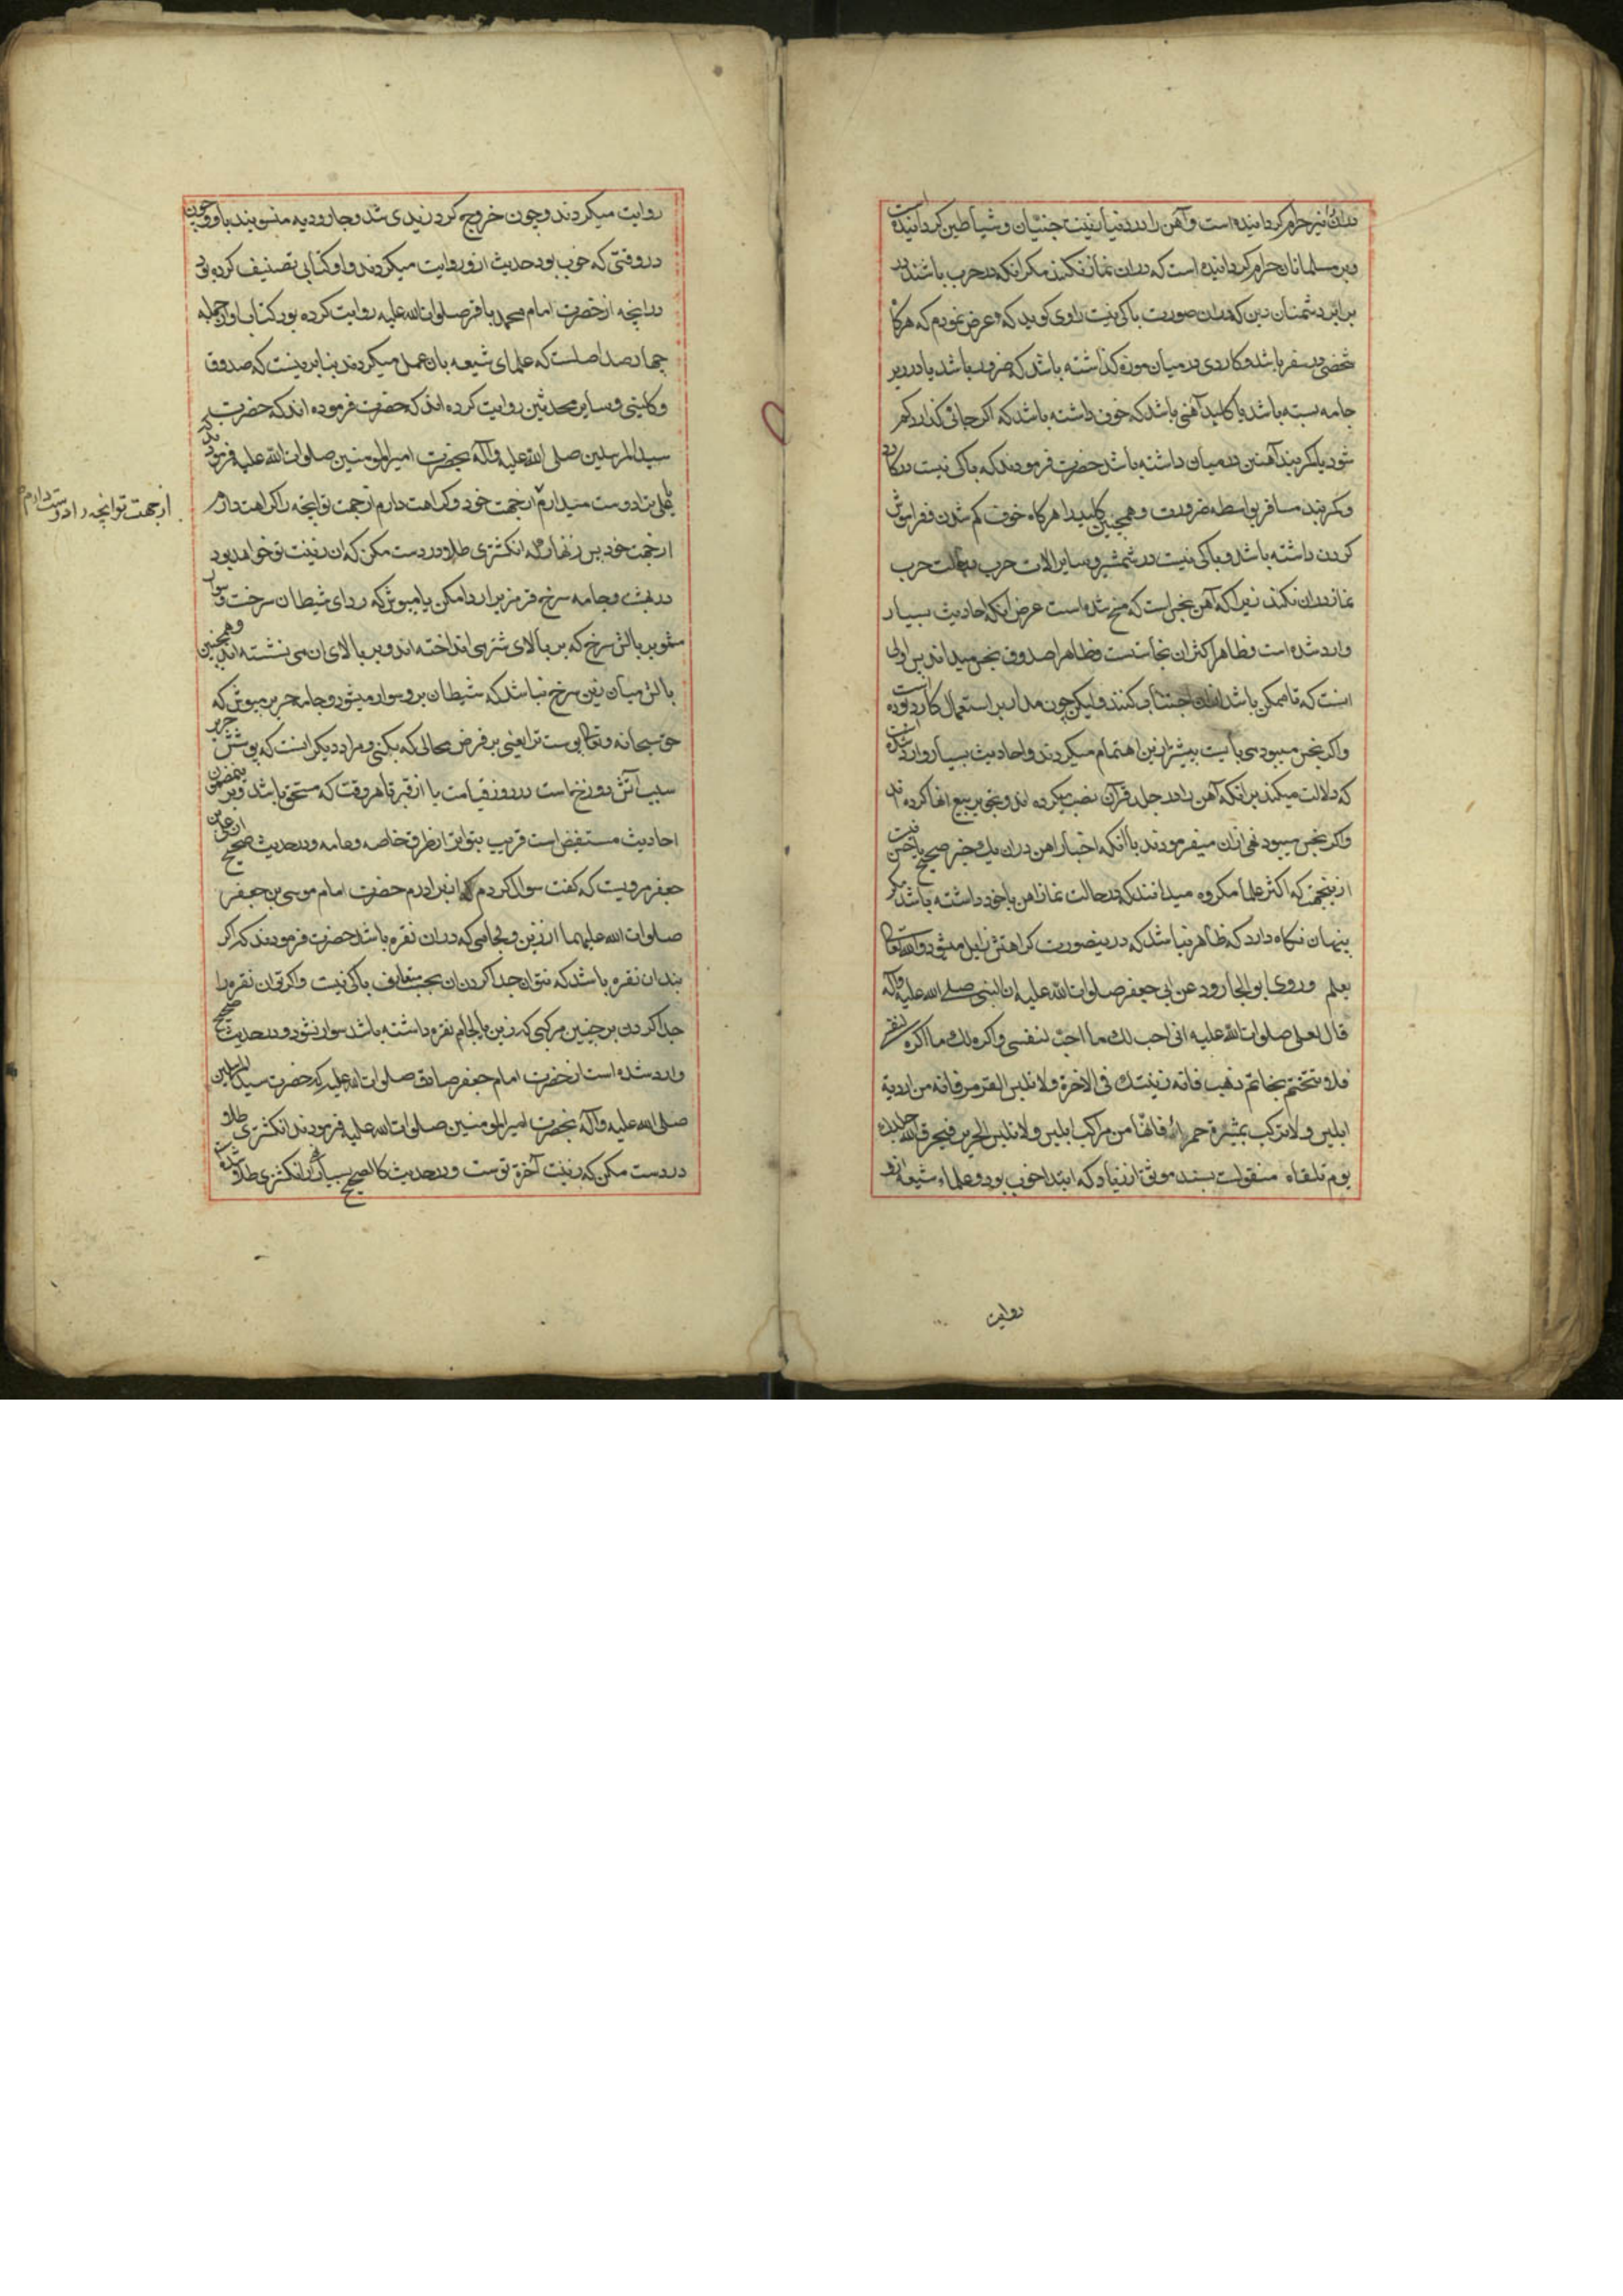 دران نیز حرام کردانیده است و آهن را در دنیا زینت جنیان و شیاطین کردانیده است
و بر مسلمانان حرام کردانیده است که دران نماز نکنند مکر انکه در حرب باشند در
برابر دشمنان دین که دران صورت باکی نیست راوی کوید که عرض نمودم که هرکاه
شخصی در سفر باشد و کاردی در میان موزه کذاشته باشد که ضرور باشد یا در زیر
جامه بسته باشد یا کلید آهنی باشد که خوف داشته باشد که اکر جائی کذارد کم
شود یا کمربند آهنین در میان داشته باشد حضرت فرمودند که باکی نیست در کارد
و کمربند مسافر بواسطه ضرورت و همچنین کلید را هرکاه خوف کم شدن و فراموش
کردن داشته باشد و باکی نیست در شمشیر و سایر الات حرب در حالت حرب
نماز دران نکنند زیرا که آهن نجس است که مسخ شده است غرض انکه احادیث بسیار
وارد شده است و ظاهر اکثر ان نجاستست و ظاهرا صدوق نجس میداند پس اولی
انست که تا ممکن باشد ازان اجتناب کنند ولیکن چون مدار بر استعمال کارد بوده است
و اکر نجس میبود می بایست بیشتر ازین اهتمام میکردند و احادیث بسیار وارد شده است
که دلالت میکند بر انکه آهن را در جلد قرآن نصب میکرده اند و تجویز بیع انها کرده اند
و اکر نجس میبود نهی ازان میفرمودند با انکه اخبار اهن دران یك خبر صحیح یا حسن نیست
ازینجهت که اکثر علما مکروه میدانند که در حالت نماز اهن با خود داشته باشد مکر
پنهان نکاه دارد که ظاهر نباشد که درینصورت کراهتش زایل میشود والله تعالی
یعلم وروی ابو الجارود عن ابی جعفر صلوات الله علیه ان النبی صلی الله علیه وآله
قال لعلی صلوات الله علیه انی احب لك ما احبّ لنفسی واکره لك ما اکره لنفسی
فلا تتختم بخاتم ذهب فانه زینتك فی الآخرة ولا تلبس القرمز فانه من اردیة
ابلیس ولا ترکب بمیثرة حمراء فانها من مراکب ابلیس ولا تلبس الحریر فیحرق الله جلدك
یوم تلقاه منقولست بسند موثق از زیاد که ابتدا خوب بود و علماء شیعه ازو
روایت
روایت میکردند و چون خروج کرد زیدی شد و جارودیه منسوبند باو و چون
در وقتی که خوب بود حدیث ازو روایت میکردند و او کتابی تصنیف کرده بود
در انچه از حضرت امام محمد باقر صلوات الله علیه روایت کرده بود کتاب او از جمله
چهار صد اصلست که علمای شیعه بان عمل میکردند بنابرینست که صدوق
و کلینی و سایر محدثین روایت کرده اند که حضرت فرموده اند که حضرت
سید المرسلین صلی الله علیه وآله بحضرت امیر المومنین صلوات الله علیه فرمودند که
یا علی ترا دوست میدارم از جهت خود و کراهت دارم از جهت تو انچه را کراهت دارم
از جهت تو انچه را دوست دارم
از جهت خود پس زنهار که انکشتری طلا در دست مکن که ان زینت تو خواهد بود
در بهشت و جامه سرخ قرمز برا ردا مکن یا مپوش که ردای شیطان سرخست و سوار
مشو بر بالش سرخ که بر بالای شتر می انداخته اند و بر بالای ان می نشسته اند و همچنین
بالش میان زین سرخ نباشد که شیطان برو سوار میشود و جامه حریر مپوش که
حق سبحانه و تعالی پوست ترا یعنی بر فرض محالی که بکنی و مراد دیکرانست که پوشش حریر
سبب آتش دوزخ است در روز قیامت یا از قبر تا هر وقت که مستحق باشد و بر مضمون
احادیث مستفیض است قریب بتواتر از طرق خاصه و عامه و در حدیث صحیح از علی بن
جعفر مرویست که کفت سوال کردم از برادرم حضرت امام موسی بن جعفر
صلوات الله علیهما از زین و لجامی که دران نقره باشد حضرت فرمودند که اکر
بندان نقره باشد که نتوان جدا کردن ان بحسب متعارف باکی نیست و اکر توان نقره را
جدا کردن بر چنین مرکبی که زین یا لجام نقره داشته باشد سوار نشود و در حدیث صحیح
وارد شده است از حضرت امام جعفر صادق صلوات الله علیه که حضرت سید المرسلین
صلی الله علیه وآله بحضرت امیر المومنین صلوات الله علیه فرمودند انکشتری طلا
در دست مکن که زینت آخرة توست و در حدیث کالصحیح بسیار از انکشتری طلا وارد شده